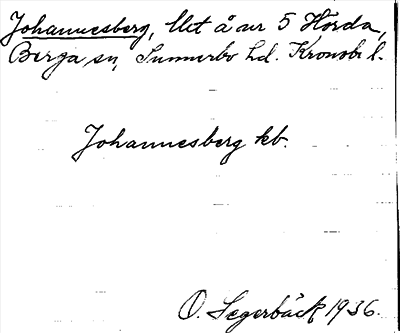 Johannesberg, lht å avs 5 Hörda,
Berga sn, Sunnerbo hd. Kronobs l.
Johannesberg kb.
O. Segerbäck 1936.